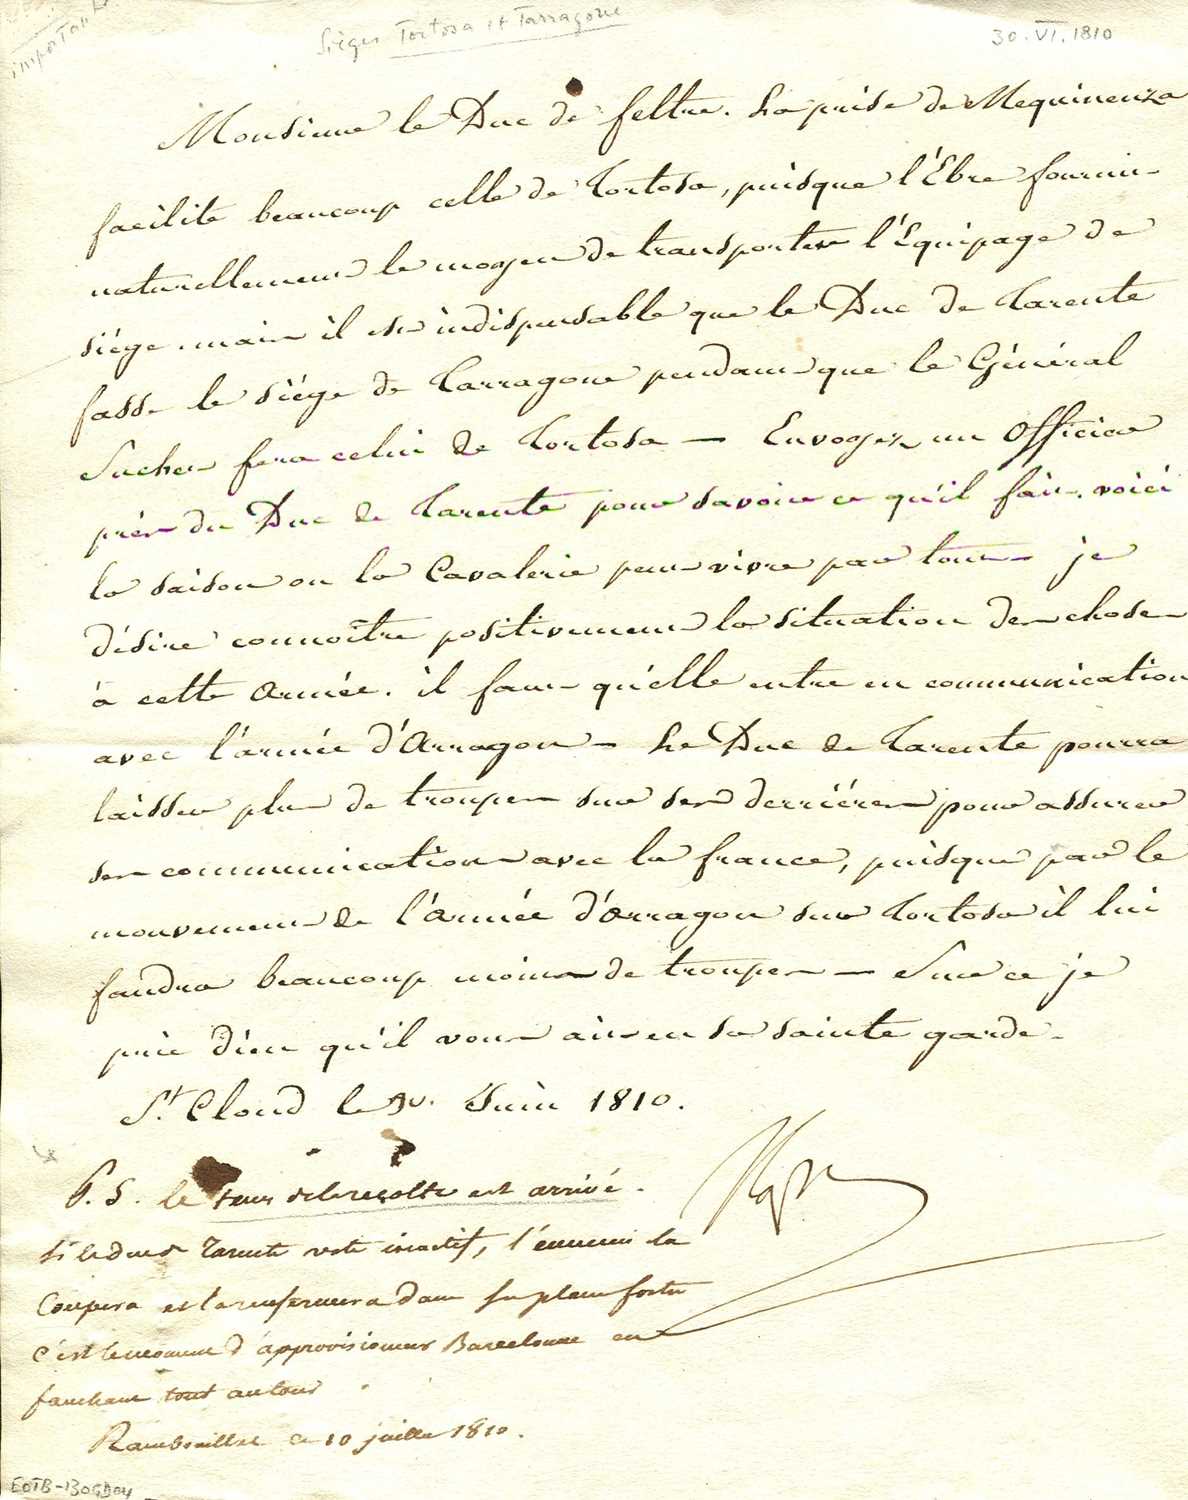 importante
Sièges Tortosa et Tarragone
30.VI.1810
Monsieur le Duc de feltre. La prise de Mequinenza
facilite beaucoup celle de Tortosa, puisque l'Ebre fournit
naturellement le moyen de transporter l'Equipage de
siége. mais il est indispensable que le Duc de Tarente
fasse le siége de Tarragone pendant que le Général
Suchet fera celui de Tortosa — Envoyez un Officier
près du Duc de Tarente pour savoir ce qu'il fait. voici
la saison ou la Cavalerie peut vivre par tout — je
désire connoître positivement la situation des choses
à cette Armée. il faut qu'elle entre en communication
avec l'armée d'Arragon — Le Duc de Tarente pourra
laisser plus de troupes sur ses derriéres pour assurer
ses communications avec la france, puisque par le
mouvement de l'Armée d'Arragon sur Tortosa il lui
faudra beaucoup moins de troupes — Sur ce je
prie dieu qu'il vous ait en sa sainte garde.
St. Cloud le 30. Juin 1810.
Nap
P.S. le tems de la recolte est arrivé.
Si le duc de Tarente reste inactif, l'ennemi la
Coupera et la renfermera dans ses places fortes
C'est le moment d'approvisionner Barcelonne en
fauchant tout autour
Rambouillet ce 10 juillet 1810.
EOTB-130GD04